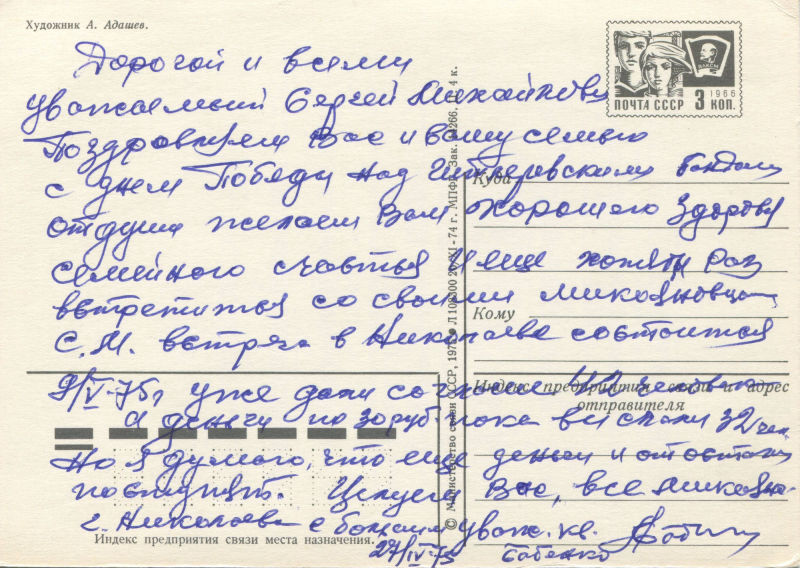 Художник А. Адашев.
ПОЧТА СССР 3 КОП. 1966
ВЛКСМ
Дорогой и всеми
уважаемый Сергей Михайлович
Поздравляем Вас и вашу семью
с днем Победы над гитлеровскими бандами
от души желаем Вам хорошего здоровья
семейного счастья и еще хотя бы раз
встретиться со своими микояновцами
С. М. встреча в Николаеве состоится
9/V-75 г уже дали согласие 40 человек
а деньги по 30 руб пока выслали 32 чел.
Но я думаю, что еще деньги и остальные
Целуем Вас, все микоянов-
г. Николаева с большим уваж. кв.
27/IV-75 Бабенко
Куда
Кому
Индекс предприятия связи и адрес
отправителя
Индекс предприятия связи места назначения.
© Министерство связи СССР, 197 Л 10 00 20/XI-74 г. МПФГ. Зак. 266. 4 к.